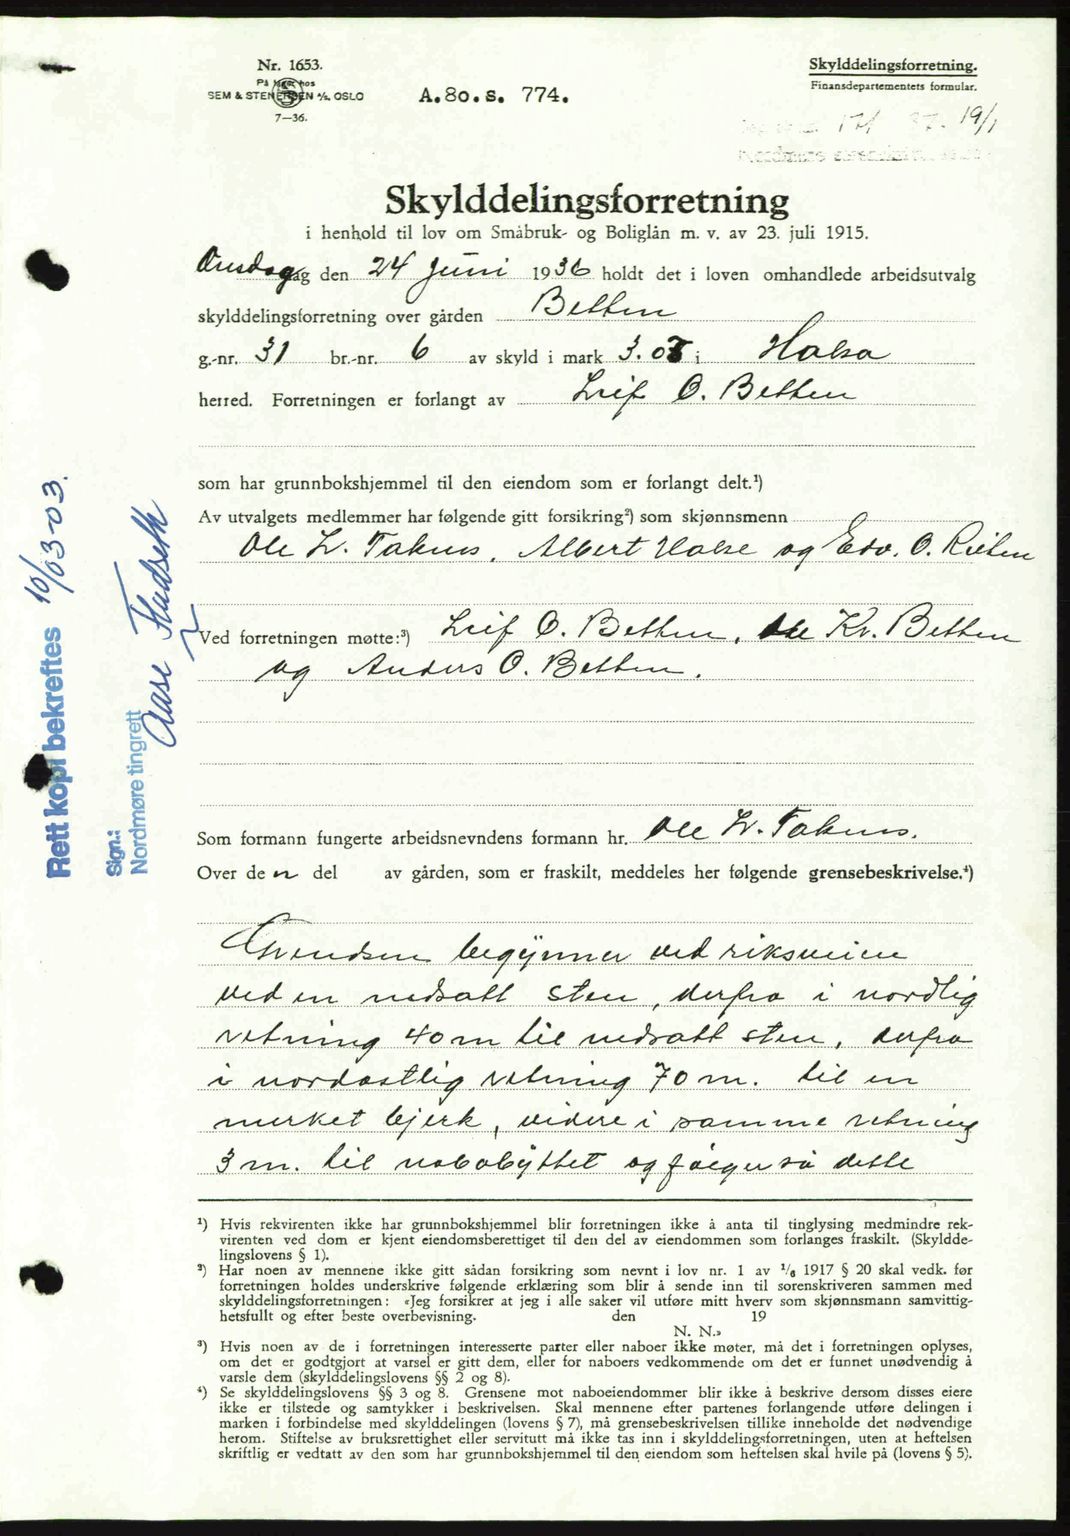 Nr. 1653.
På lager hos
SEM & STENERSEN A/S. OSLO
7—36.
A.80.s. 774.
Skylddelingsforretning.
Finansdepartementets formular.
19/1
Skylddelingsforretning
i henhold til lov om Småbruk- og Boliglån m. v. av 23. juli 1915.
Onsdag den 24 juni 1936 holdt det i loven omhandlede arbeidsutvalg
skylddelingsforretning over gården Betten
g.-nr. 31 br.-nr. 6 av skyld i mark 3.08 i Halsa
herred. Forretningen er forlangt av Leif O. Betten
som har grunnbokshjemmel til den eiendom som er forlangt delt.¹)
Av utvalgets medlemmer har følgende gitt forsikring²) som skjønnsmenn
Ole L. Taknes, Albert Halse og Edv. O. Rieten
Ved forretningen møtte:³) Leif O. Betten, Ole Kr. Betten
og Anders O. Betten.
Som formann fungerte arbeidsnevndens formann hr. Ole L. Taknes.
Over de n del av gården, som er fraskilt, meddeles her følgende grensebeskrivelse.⁴)
Grendsen begynner ved riksveien
ved en nedsatt sten, derfra i nordlig
retning 40 m til nedsatt sten, derfra
i nordøstlig retning 70 m. til en
merket bjerk, videre i samme retning
3 m. til nabobyttet og følger så dette
¹) Hvis rekvirenten ikke har grunnbokshjemmel blir forretningen ikke å anta til tinglysing medmindre rek-
virenten ved dom er kjent eiendomsberettiget til den del av eiendommen som forlanges fraskilt. (Skyldde-
lingslovens § 1).
²) Har noen av mennene ikke gitt sådan forsikring som nevnt i lov nr. 1 av 1/6 1917 § 20 skal vedk. før
forretningen holdes underskrive følgende erklæring som blir å sende inn til sorenskriveren sammen med
skylddelingsforretningen: «Jeg forsikrer at jeg i alle saker vil utføre mitt hverv som skjønnsmann samvittig-
hetsfullt og efter beste overbevisning. den 19
N. N.»
³) Hvis noen av de i forretningen interesserte parter eller naboer ikke møter, må det i forretningen oplyses,
om det er godtgjort at varsel er gitt dem, eller for naboers vedkommende om det er funnet unødvendig å
varsle dem (skylddelingslovens §§ 2 og 8).
⁴) Se skylddelingslovens §§ 3 og 8. Grensene mot naboeiendommer blir ikke å beskrive dersom disses eiere
ikke er tilstede og samtykker i beskrivelsen. Skal mennene efter partenes forlangende utføre delingen i
marken i forbindelse med skylddelingen (lovens § 7), må grensebeskrivelsen tillike inneholde det nødvendige
herom. Stiftelse av bruksrettighet eller servitutt må ikke tas inn i skylddelingsforretningen, uten at heftelsen
skriftlig er vedtatt av den som har grunnbokshjemmel til den eiendom som heftelsen skal hvile på (lovens § 5).
Rett kopi bekreftes 10/03-03.
Sign.:
Nordmøre tingrett
Aase